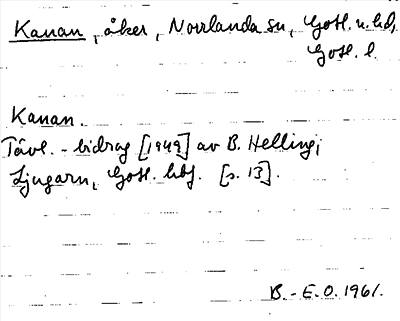 Kanan, åker, Norrlanda sn, Gotl. n. hd,
Gotl. l.
Kanan.
Tävl.-bidrag [1949] av B. Helling,
Ljugarn, Gotl. hbf. [s. 13].
B.-E.O. 1961.